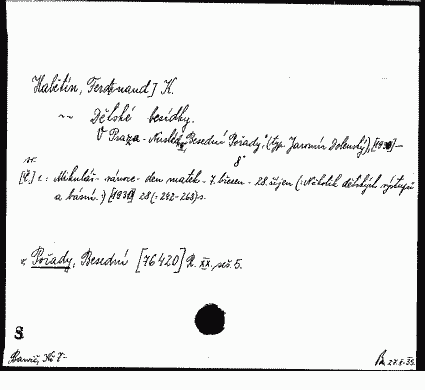 Habětín, Ferdinand] K.
~~ Dětské besídky.
V Praze - Nuslích, „Besední Pořady," (typ. Jaromír Dolenský), [193]-
8°
sv.
[č.] : Mikuláš - vánoce - den matek - 7. březen - 28. říjen (: Několik dětských výstupů
a básní. :) [193] 28 (: 242-268) s.
v. Pořady, Besední [76420] R. XX. seš. 5.
S
27.X.35.